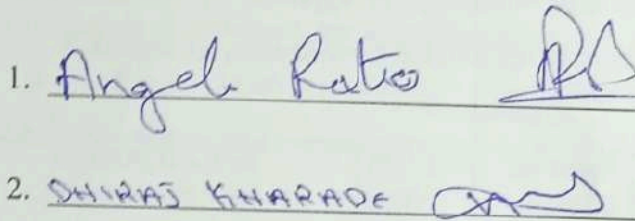 1. Angel Ratio
2. DHIRAJ KHARADE